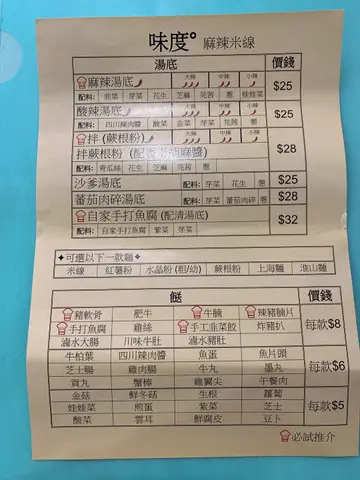 味度° 麻辣米線
湯底 價錢
麻辣湯底 大辣 中辣 小辣 $25
配料: 韭菜 芽菜 花生 芝麻 芫茜 蔥 娃娃菜
酸辣湯底 大辣 中辣 小辣 $25
配料: 四川辣肉醬 酸菜 韭菜 芽菜 芫茜 蔥
拌(蕨根粉) 大辣 中辣 小辣 $28
拌蕨根粉 (配 麻醬)
配料: 青瓜絲 花生 芝麻 芫茜 蔥
沙爹湯底 配料: 芽菜 花生 蔥 $25
蕃茄肉碎湯底 配料: 芽菜 蕃茄肉碎 蔥 $28
自家手打魚腐 (配清湯底) $32
配料: 自家手打魚腐 紫菜 芽菜
✦可選以下一款麵✦
米線 紅薯粉 水晶粉 (粗/幼) 蕨根粉 上海麵 淮山麵
餸 價錢
豬軟骨 肥牛 牛腩 辣豬腩片 每款$8
手打魚腐 雞絲 手工韭菜餃 炸豬扒
滷水大腸 川味牛肚 滷水豬肚
牛柏葉 四川辣肉醬 魚蛋 魚片頭 每款$6
芝士腸 雞肉腸 牛丸 墨丸
貢丸 蟹棒 雞翼尖 午餐肉
金菇 鮮冬菇 生根 蘿蔔 每款$5
娃娃菜 煎蛋 紫菜 芝士
酸菜 雲耳 鮮腐皮 豆卜
必試推介